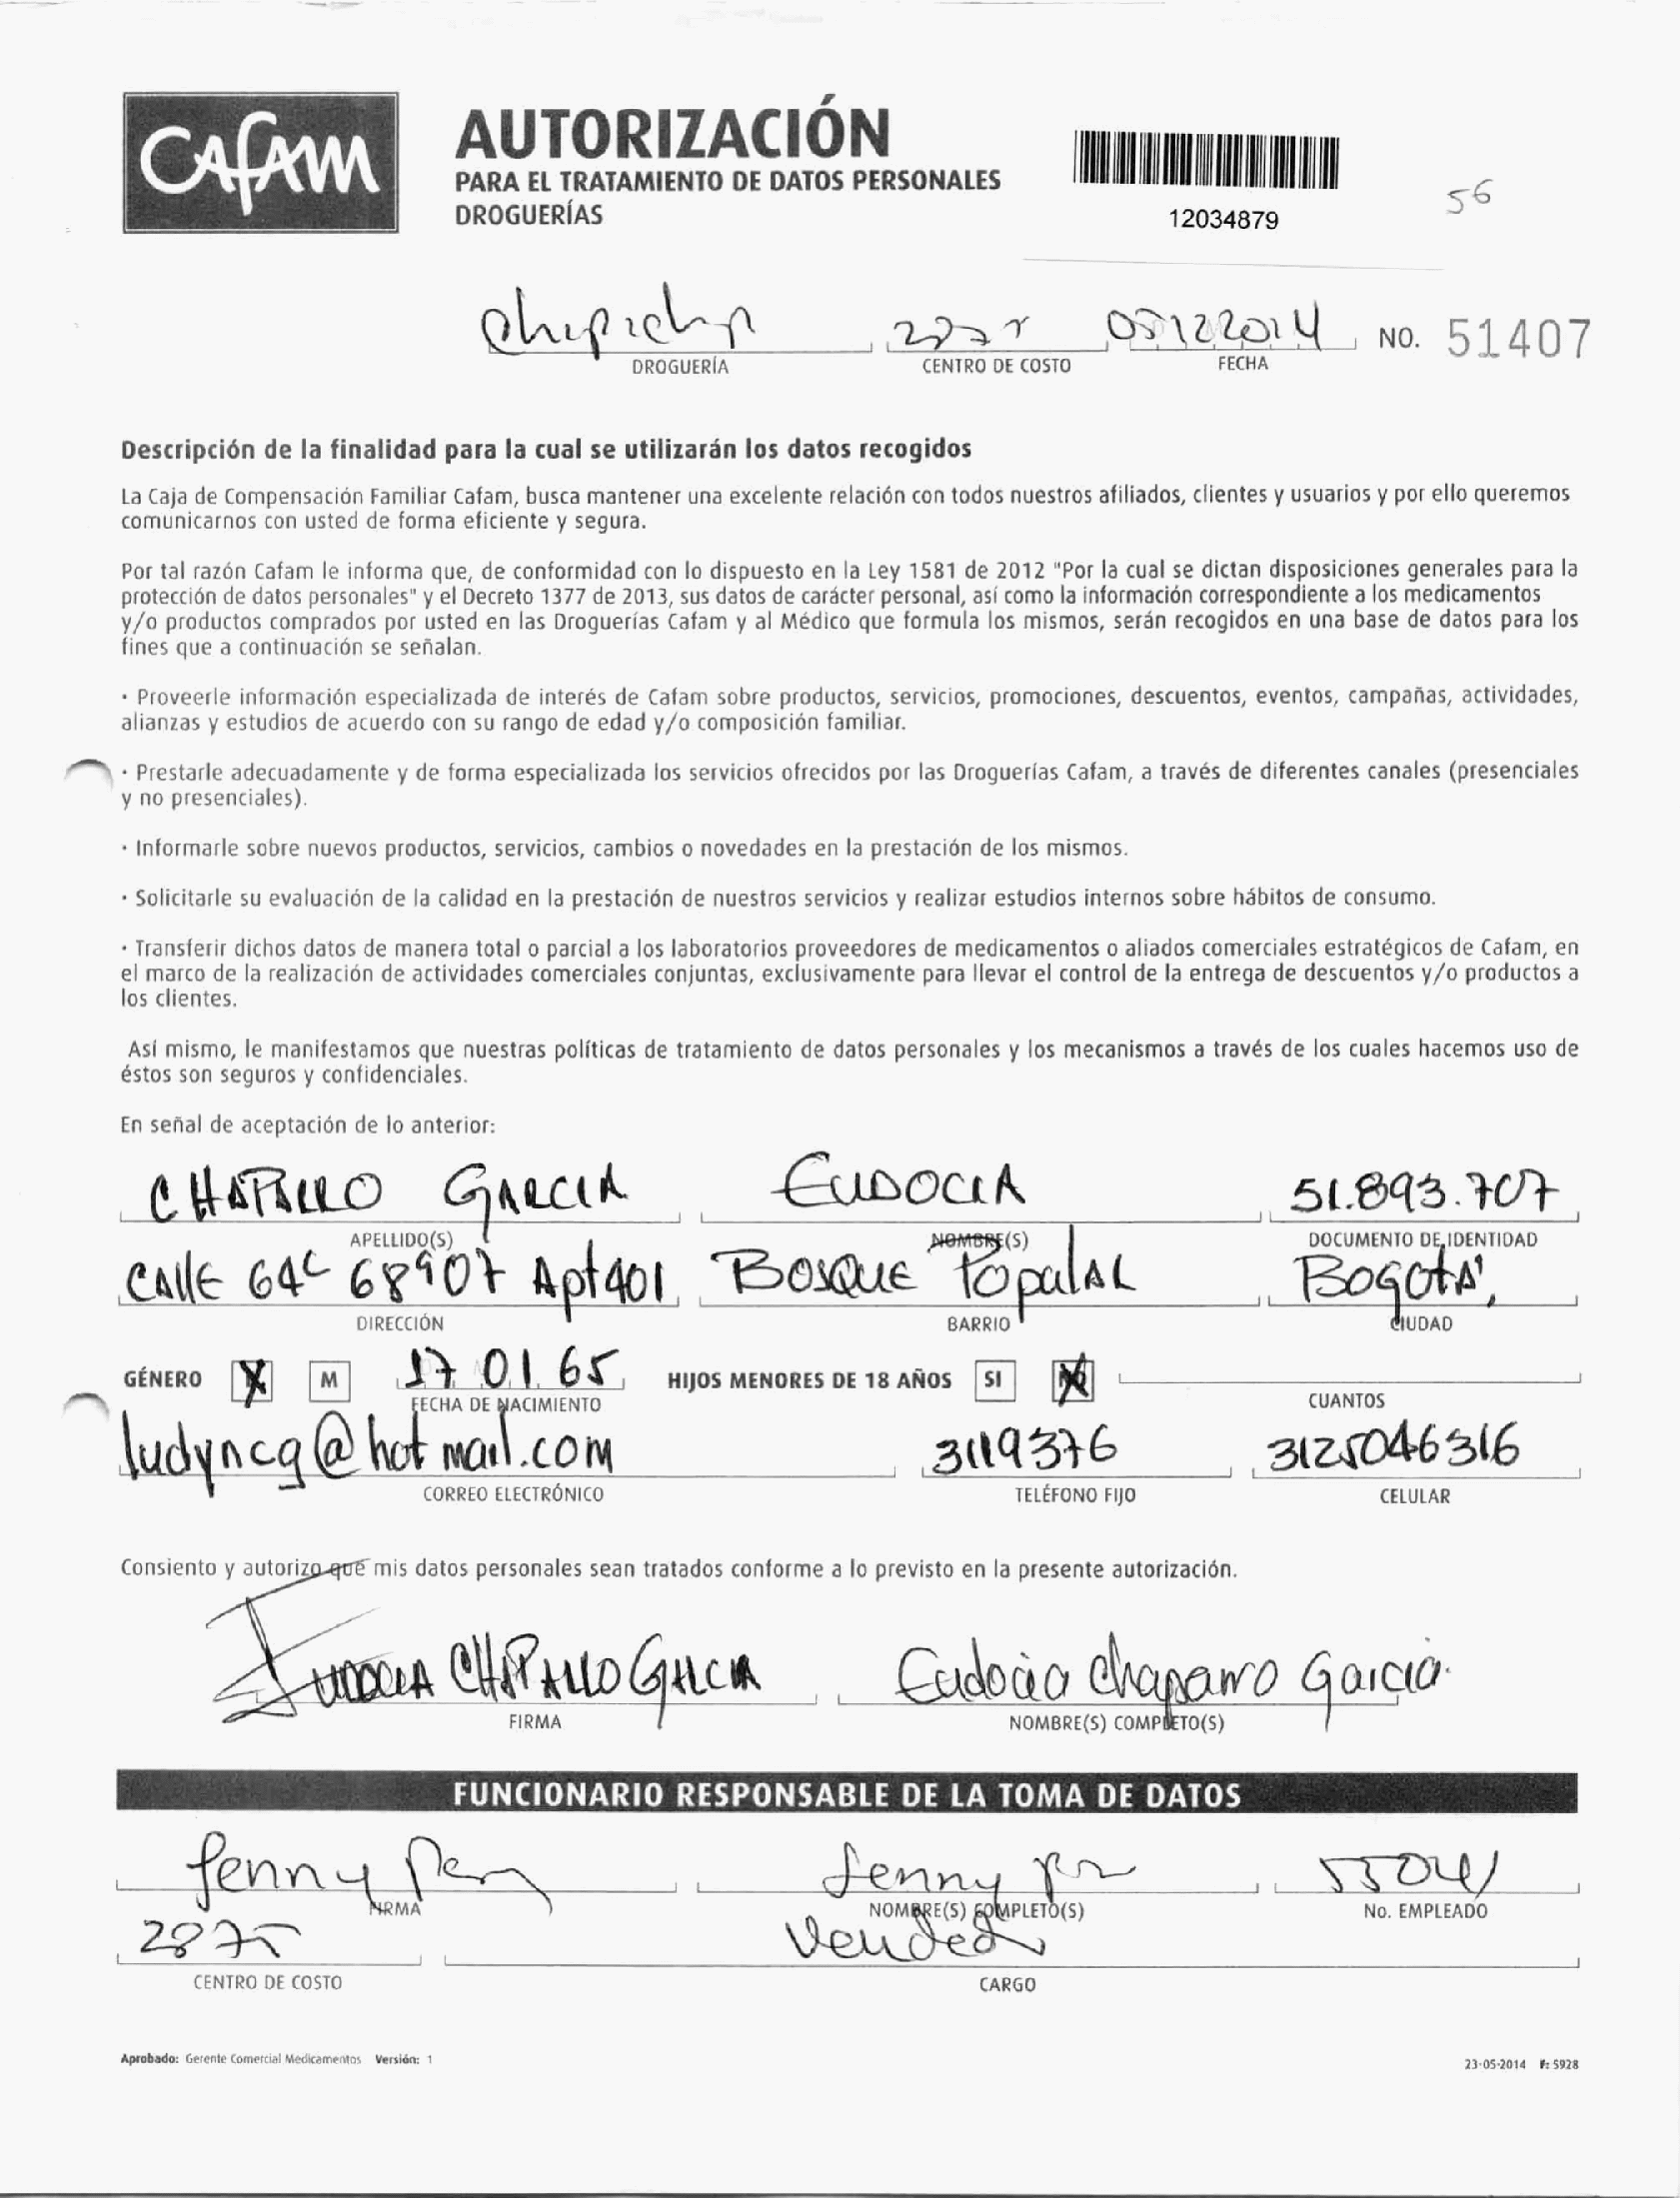 CAFAM
AUTORIZACIÓN
PARA EL TRATAMIENTO DE DATOS PERSONALES
DROGUERÍAS
12034879
56
05122014 NO. 51407
DROGUERÍA CENTRO DE COSTO FECHA
Descripción de la finalidad para la cual se utilizarán los datos recogidos
La Caja de Compensación Familiar Cafam, busca mantener una excelente relación con todos nuestros afiliados, clientes y usuarios y por ello queremos
comunicarnos con usted de forma eficiente y segura.
Por tal razón Cafam le informa que, de conformidad con lo dispuesto en la Ley 1581 de 2012 "Por la cual se dictan disposiciones generales para la
protección de datos personales" y el Decreto 1377 de 2013, sus datos de carácter personal, así como la información correspondiente a los medicamentos
y/o productos comprados por usted en las Droguerías Cafam y al Médico que formula los mismos, serán recogidos en una base de datos para los
fines que a continuación se señalan.
· Proveerle información especializada de interés de Cafam sobre productos, servicios, promociones, descuentos, eventos, campañas, actividades,
alianzas y estudios de acuerdo con su rango de edad y/o composición familiar.
· Prestarle adecuadamente y de forma especializada los servicios ofrecidos por las Droguerías Cafam, a través de diferentes canales (presenciales
y no presenciales).
· Informarle sobre nuevos productos, servicios, cambios o novedades en la prestación de los mismos.
· Solicitarle su evaluación de la calidad en la prestación de nuestros servicios y realizar estudios internos sobre hábitos de consumo.
· Transferir dichos datos de manera total o parcial a los laboratorios proveedores de medicamentos o aliados comerciales estratégicos de Cafam, en
el marco de la realización de actividades comerciales conjuntas, exclusivamente para llevar el control de la entrega de descuentos y/o productos a
los clientes.
Así mismo, le manifestamos que nuestras políticas de tratamiento de datos personales y los mecanismos a través de los cuales hacemos uso de
éstos son seguros y confidenciales.
En señal de aceptación de lo anterior:
CHAPARRO GARCIA EUDOCIA 51.893.707
APELLIDO(S) NOMBRE(S) DOCUMENTO DE IDENTIDAD
CALLE 64C 68907 Apt401 BOSQUE POPULAR BOGOTA,
DIRECCIÓN BARRIO CIUDAD
GÉNERO X M 17 01 65 HIJOS MENORES DE 18 AÑOS SI X
FECHA DE NACIMIENTO CUANTOS
ludyncg@hotmail.com 3119376 3125046316
CORREO ELECTRÓNICO TELÉFONO FIJO CELULAR
Consiento y autorizo que mis datos personales sean tratados conforme a lo previsto en la presente autorización.
EUDOCIA CHAPARRO GARCIA Eudocia Chaparro Garcia.
FIRMA NOMBRE(S) COMPLETO(S)
FUNCIONARIO RESPONSABLE DE LA TOMA DE DATOS
Jenny Jenny 55041
FIRMA NOMBRE(S) COMPLETO(S) No. EMPLEADO
2875
CENTRO DE COSTO CARGO
Aprobado: Gerente Comercial Medicamentos Versión: 1 23-05-2014 F: 5928